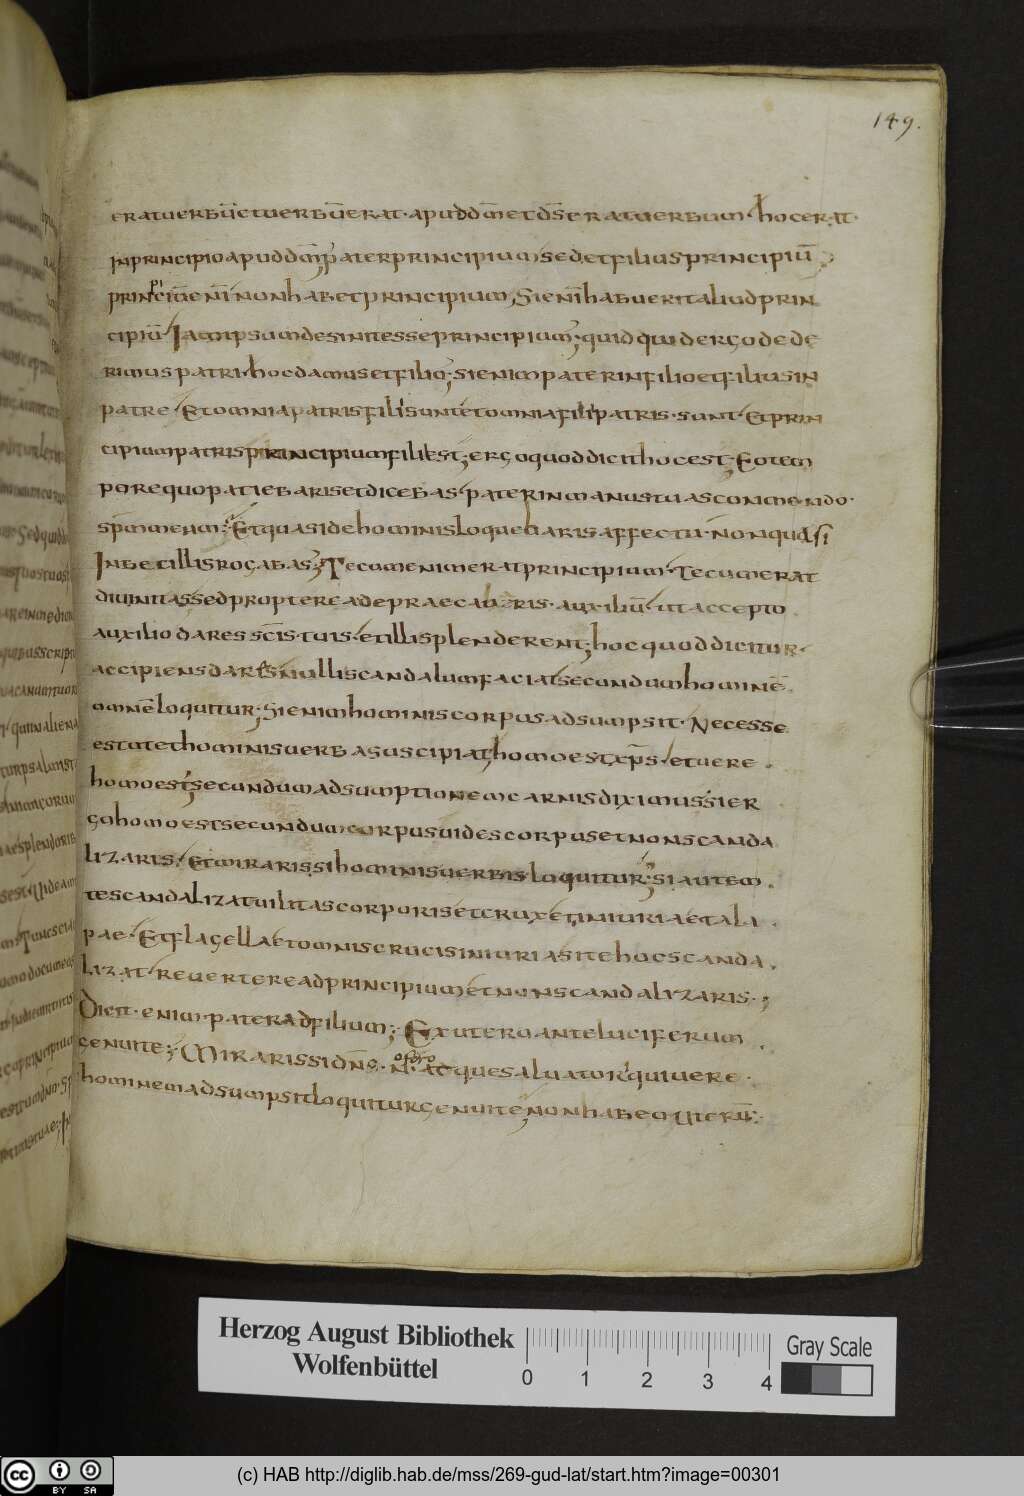 149.
erat uerbū et uerbū erat · apud dm̄ et ds̄ erat uerbum · hoc erat ·
In principio apud dm̄; pater principium sed et filius principiū;
principiū eni non habet principium; Si eni habuerit aliud prin
cipiū · Iam ipsum desinit esse principium; quid quid ergo dede
rimus patri · hoc damus et filio; si enim pater in filio et filius in
patre · Et omnia patris filii sunt et omnia filii patris · sunt · Et prin
cipium patris principium filii est; ergo quod dicit hoc est; Eo tem
pore quo patiebaris et dicebas · pater in manus tuas commendo ·
spm̄ meum; Et quasi de hominis loquebaris affectu · non quasi
Inbecillis rogabas; Tecum enim erat principium · Tecum erat
diuinitas sed propterea deprecaueris · auxiliū · ut accepto
auxilio dares sc̄is · tuis · et illi splenderent; hoc quod dicitur ·
accipiens daret · nulli scandalum faciat secundum hominē
omnē loquitur; Si enim hominis corpus adsumpsit · Necesse
est ut et hominis uerba suscipiat; homo est xp̄s · et uere ·
homo est; secundum adsumptionem carnis diximus si er
go homo est secundum corpus uides corpus et non scanda
lizaris; Et miraris si hominis uerbis loquitur; si autem
te scandalizat uilitas corporis et crux et iniuriae et ala
pae · Et flagella et omnis crucis iniuria si te hoc scanda
lizat reuertere ad principium et non scandalyzaris ·;
Dicit · enim · pater ad filium; Ex utero ante luciferum
genui te; Miraris si dn̄s · n̄ · ac que saluator qui uere ·
hominem adsumpsit loquitur genui te; non habeo uterū;
Herzog August Bibliothek
Wolfenbüttel
0 1 2 3 4
Gray Scale
cc BY SA
(c) HAB http://diglib.hab.de/mss/269-gud-lat/start.htm?image=00301